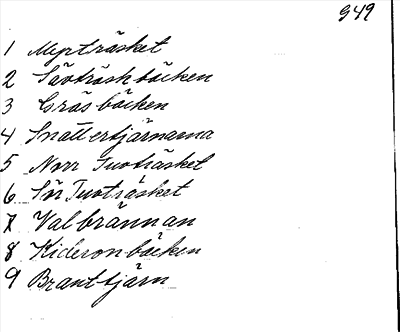 949
1 Myrträsket
2 Sävträskbäcken
3 Gräsbäcken
4 Snattertjärnarna
5 Norr Tuvträsket
6 Sör Tuvträsket
7 Valbrännan
8 Kideronbäcken
9 Branttjärn